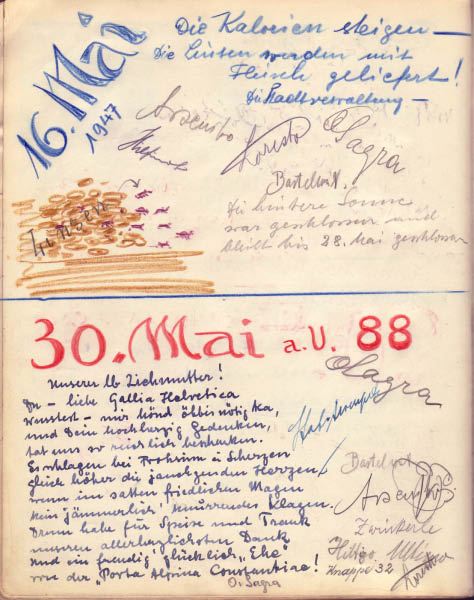 16. Mai
1947
Die Kalorien steigen —
Die Linsen werden mit
Fleisch geliefert!
Die Stadtverwaltung —
Arsenbo
Koristo
O Sagra
Bastelwit.
Die hintere Sonne
war geschlossen und
bleibt bis 28. Mai geschlossen
Linsen
30. Mai a.U. 88
O Sagra
Unserer lb Ziehmutter!
Du – liebe Gallia Helvetica
wusstest – mir hönd ölbis nötig ka,
und Dein hochherzig Gedenken,
tat uns so reichlich beschenken.
Es schlagen bei Frohsinn u Scherzen
gleich höher die jauchzenden Herzen
wenn im satten friedlichen Magen
kein jämmerlich' knurrendes Klagen.
Drum habe für Speise und Trank
unseren allerherzlichsten Dank
und ein freudig glücklich „Ehe“
von der „Porta Alpina Constantiae!
O. Sagra
Bastelwit
Arsenbo
Zwinkerle
Hilligo
Knappe 32